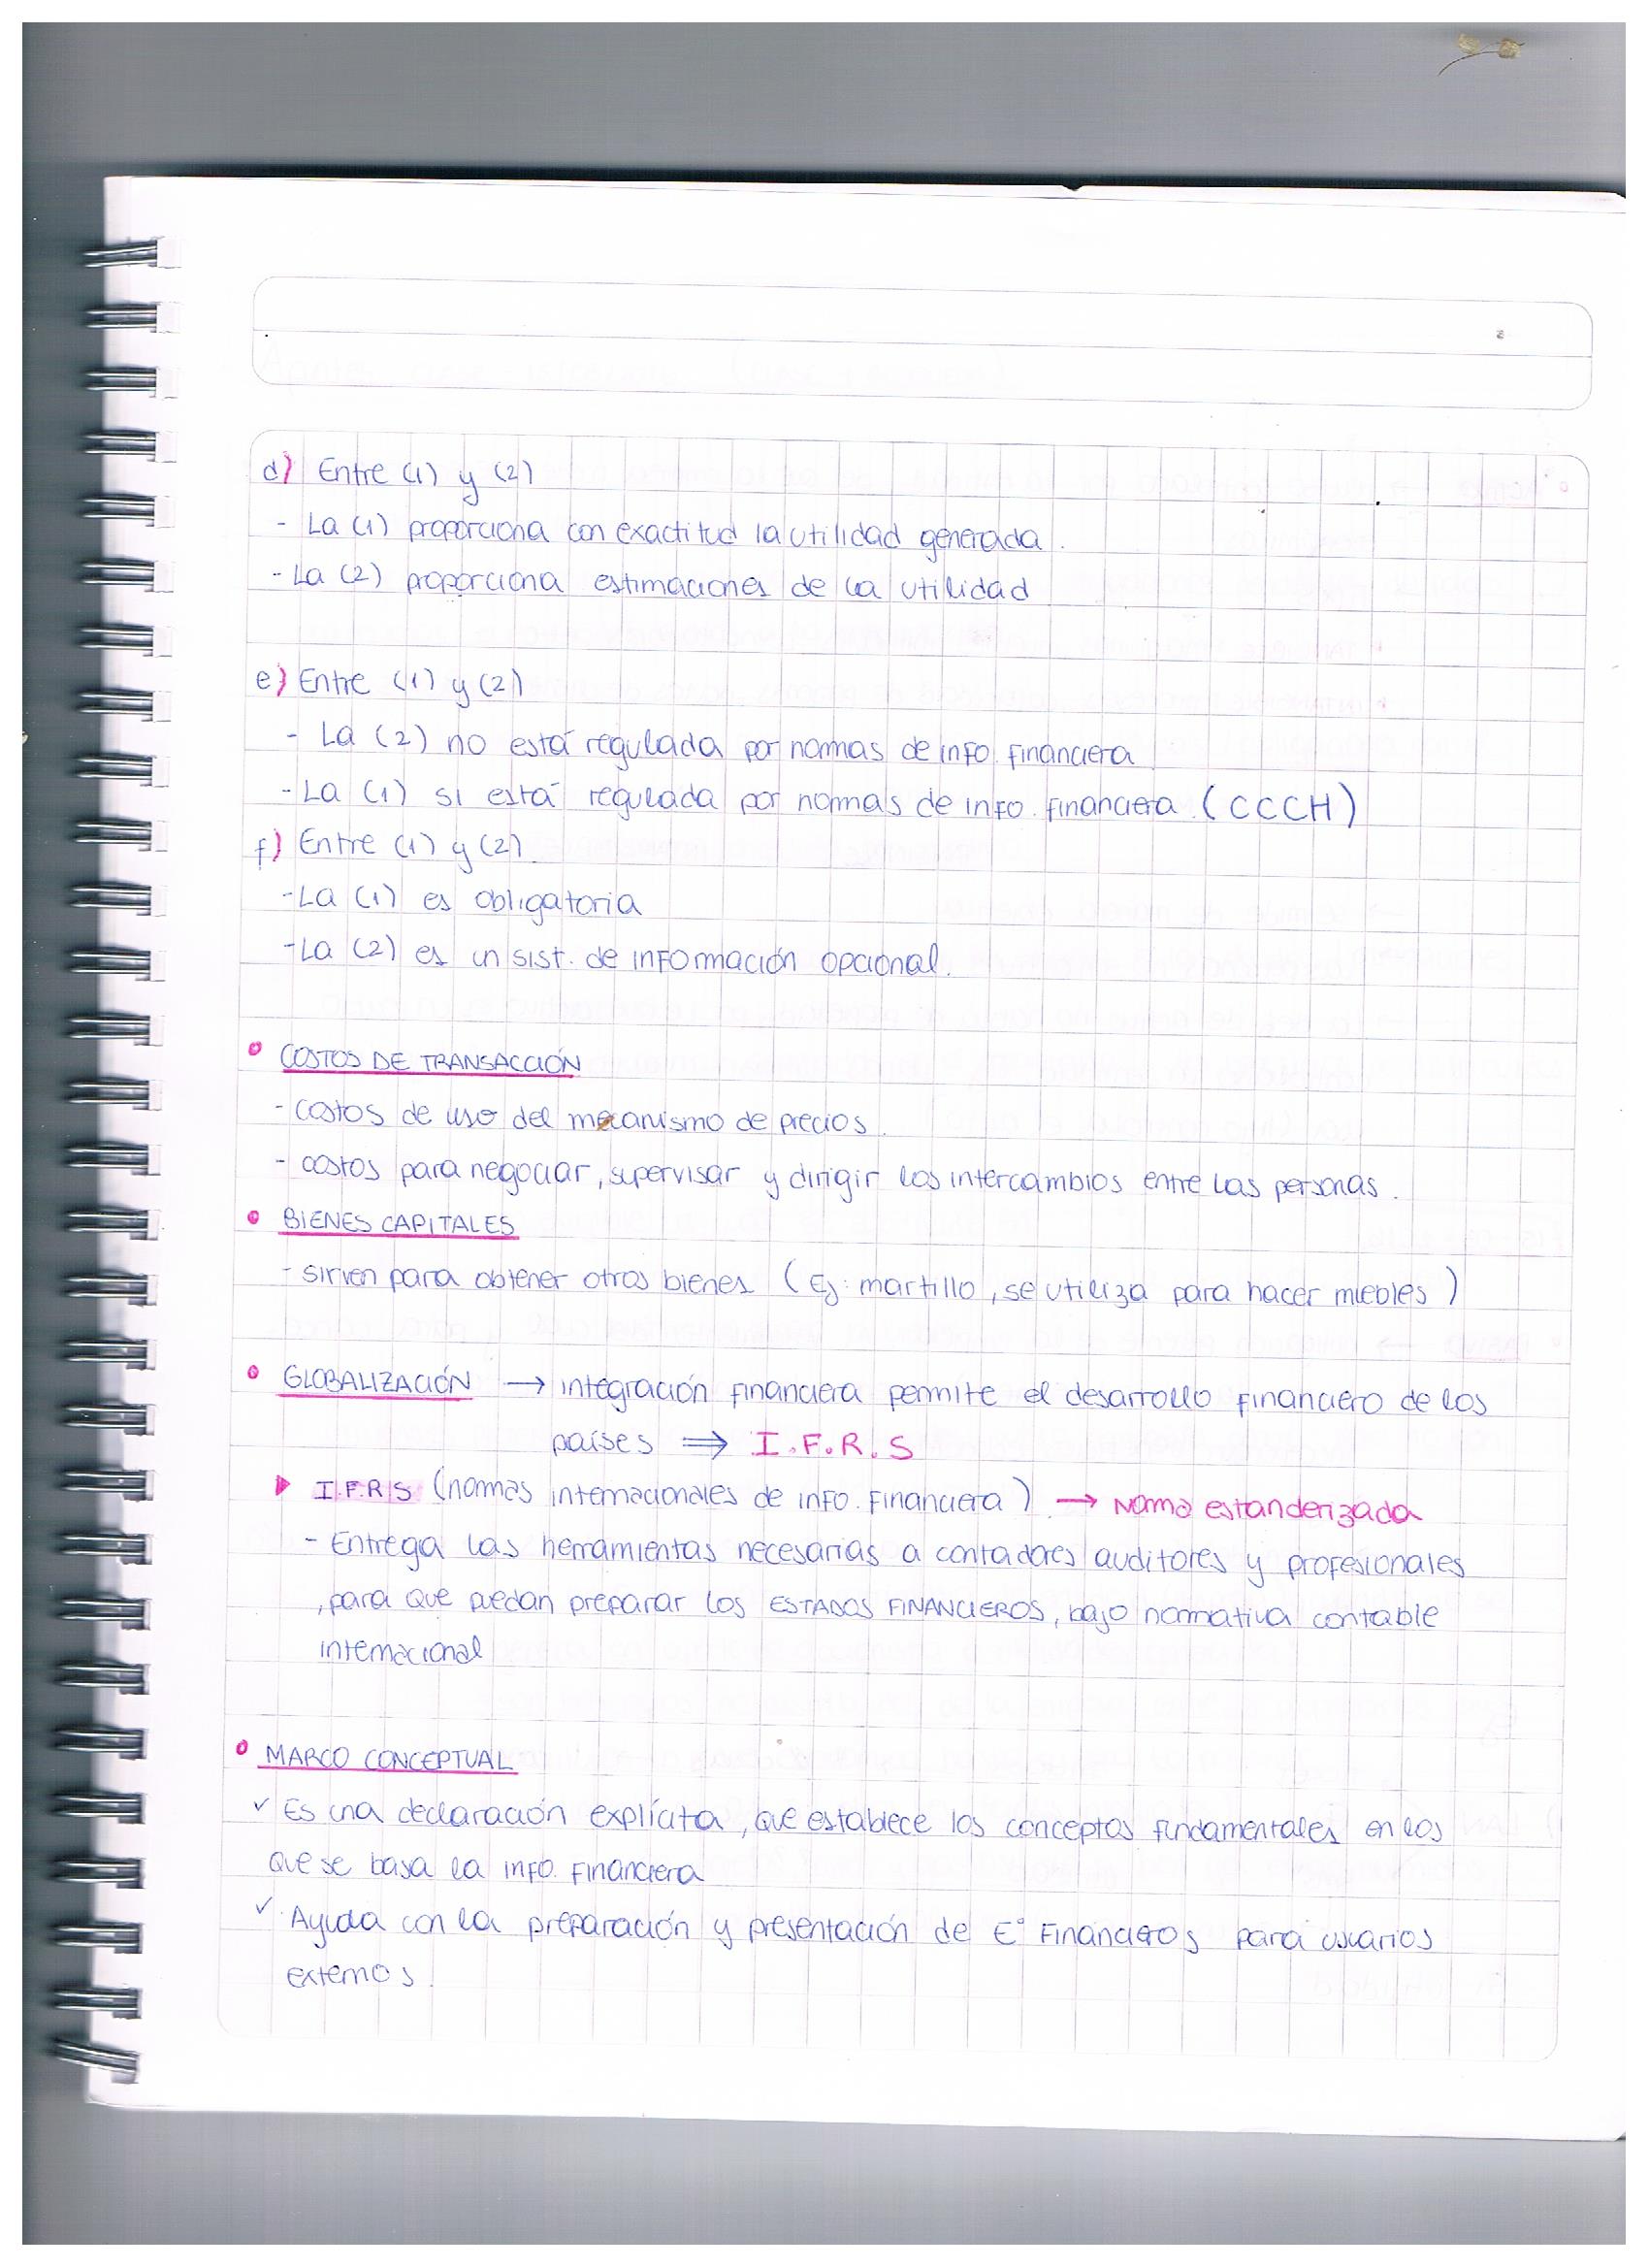 d) Entre (1) y (2)
- La (1) proporciona con exactitud la utilidad generada.
- La (2) proporciona estimaciones de la utilidad
e) Entre (1) y (2)
- La (2) no está regulada por normas de info. financiera
- La (1) si está regulada por normas de info. financiera (CCCH)
f) Entre (1) y (2).
- La (1) es obligatoria
- La (2) es un sist. de información opcional.
• COSTOS DE TRANSACCIÓN
- costos de uso del mecanismo de precios.
- costos para negociar, supervisar y dirigir los intercambios entre las personas.
• BIENES CAPITALES
- sirven para obtener otros bienes (Ej: martillo, se utiliza para hacer muebles)
• GLOBALIZACIÓN → integración financiera permite el desarrollo financiero de los
países ⇒ I.F.R.S
▸ I.F.R.S (normas internacionales de info. Financiera) → Norma estanderizada
- Entrega las herramientas necesarias a contadores auditores y profesionales
, para que puedan preparar los ESTADOS FINANCIEROS, bajo normativa contable
internacional
• MARCO CONCEPTUAL
✓ Es una declaración explícita, que establece los conceptos fundamentales en los
que se basa la info. Financiera
✓ Ayuda con la preparación y presentación de E° Financieros para usuarios
externos.